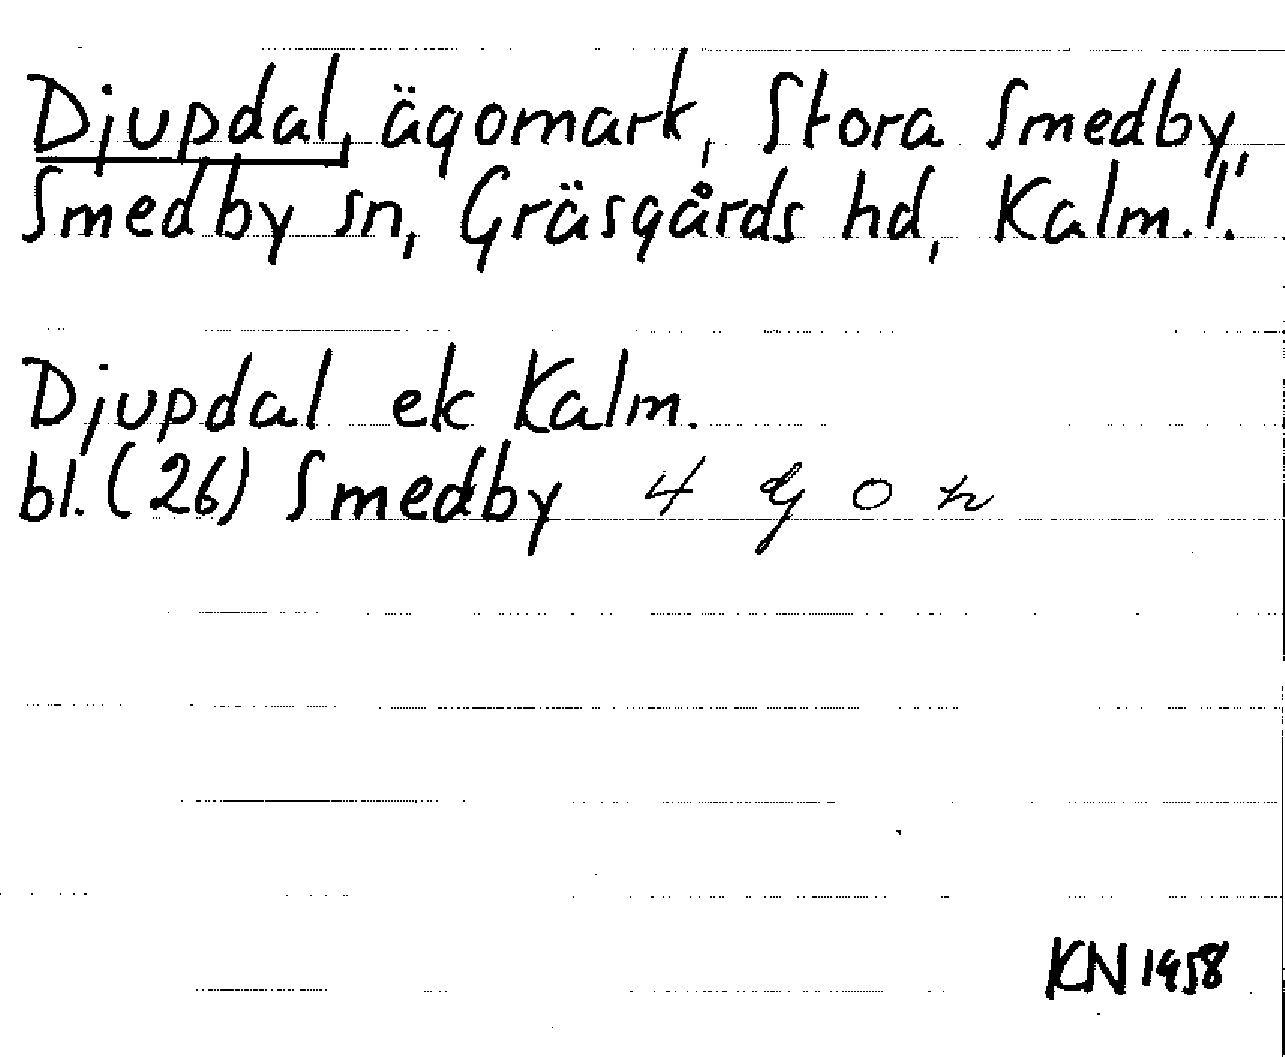 Djupdal, ägomark, Stora Smedby,
Smedby sn, Gräsgårds hd, Kalm.l.
Djupdal ek Kalm.
bl. (26) Smedby 4 g o n
KN 1958